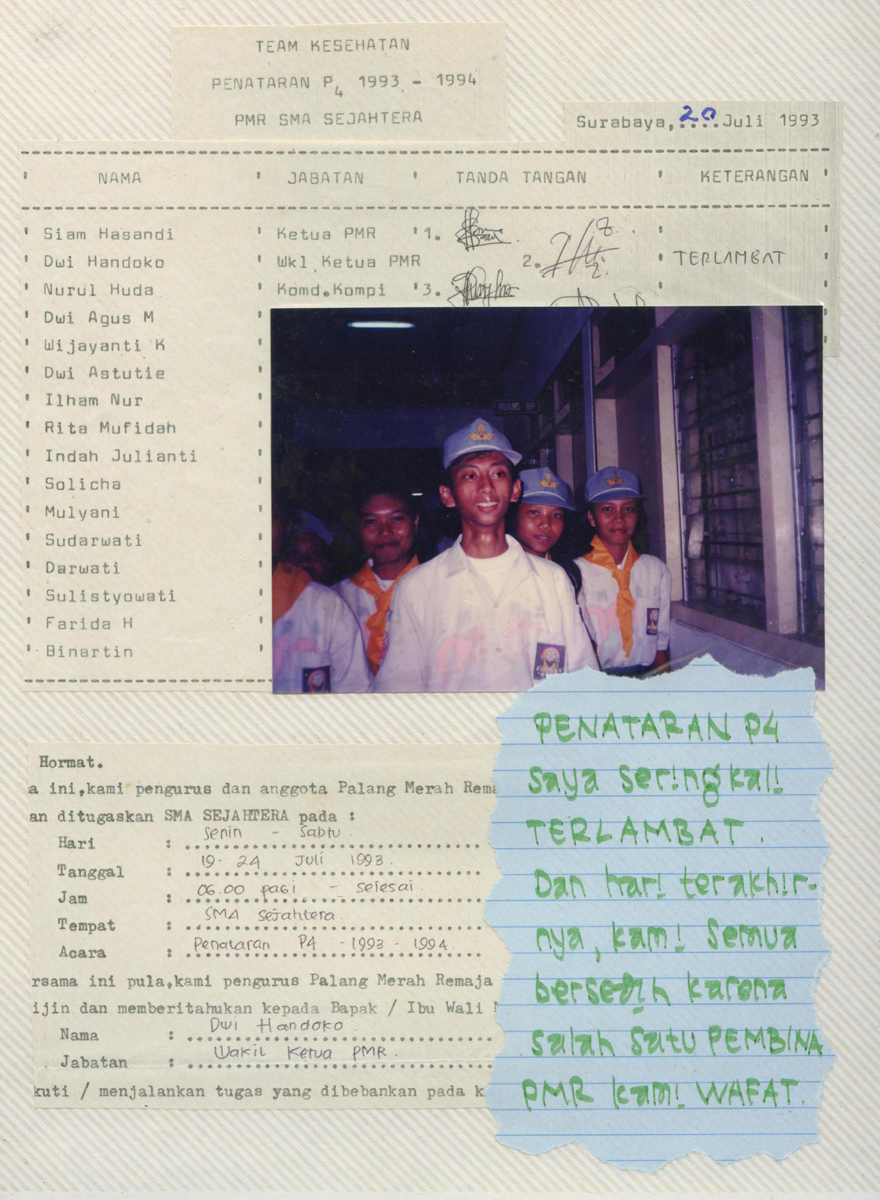 TEAM KESEHATAN
PENATARAN P4 1993 - 1994
PMR SMA SEJAHTERA
Surabaya, 20 Juli 1993
NAMA JABATAN TANDA TANGAN KETERANGAN
Siam Hasandi Ketua PMR 1.
Dwi Handoko Wkl Ketua PMR 2. TERLAMBAT
Nurul Huda Komd.Kompi 3.
Dwi Agus M
Wijayanti K
Dwi Astutie
Ilham Nur
Rita Mufidah
Indah Julianti
Solicha
Mulyani
Sudarwati
Darwati
Sulistyowati
Farida H
Binartin
RUANG BP
Hormat.
a ini,kami pengurus dan anggota Palang Merah Rema
an ditugaskan SMA SEJAHTERA pada :
Hari : Senin - Sabtu.
Tanggal : 19 - 24 Juli 1993.
Jam : 06.00 pagi - selesai.
Tempat : SMA Sejahtera.
Acara : Penataran P4 - 1993 - 1994.
rsama ini pula,kami pengurus Palang Merah Remaja
ijin dan memberitahukan kepada Bapak / Ibu Wali
Nama : Dwi Handoko.
Jabatan : Wakil Ketua PMR.
kuti / menjalankan tugas yang dibebankan pada k
PENATARAN P4
saya seringkali
TERLAMBAT.
Dan hari terakhir-
nya, kami semua
bersedih karena
salah satu PEMBINA
PMR kami WAFAT.